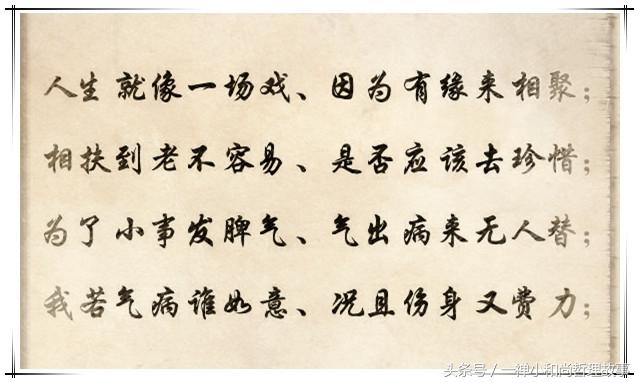 人生就像一场戏、因为有缘来相聚；
相扶到老不容易、是否应该去珍惜；
为了小事发脾气、气出病来无人替；
我若气病谁如意、况且伤身又费力；
头条号 / 一禅小和尚哲理故事